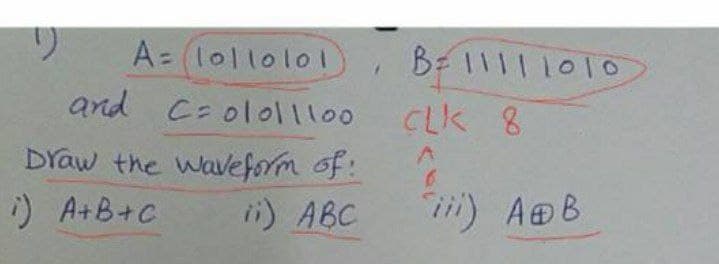 1) A = 10110101 , B = 11111010
and C = 01011100 CLK 8
Draw the waveform of: A
B
C
i) A+B+C ii) ABC iii) A⊕B